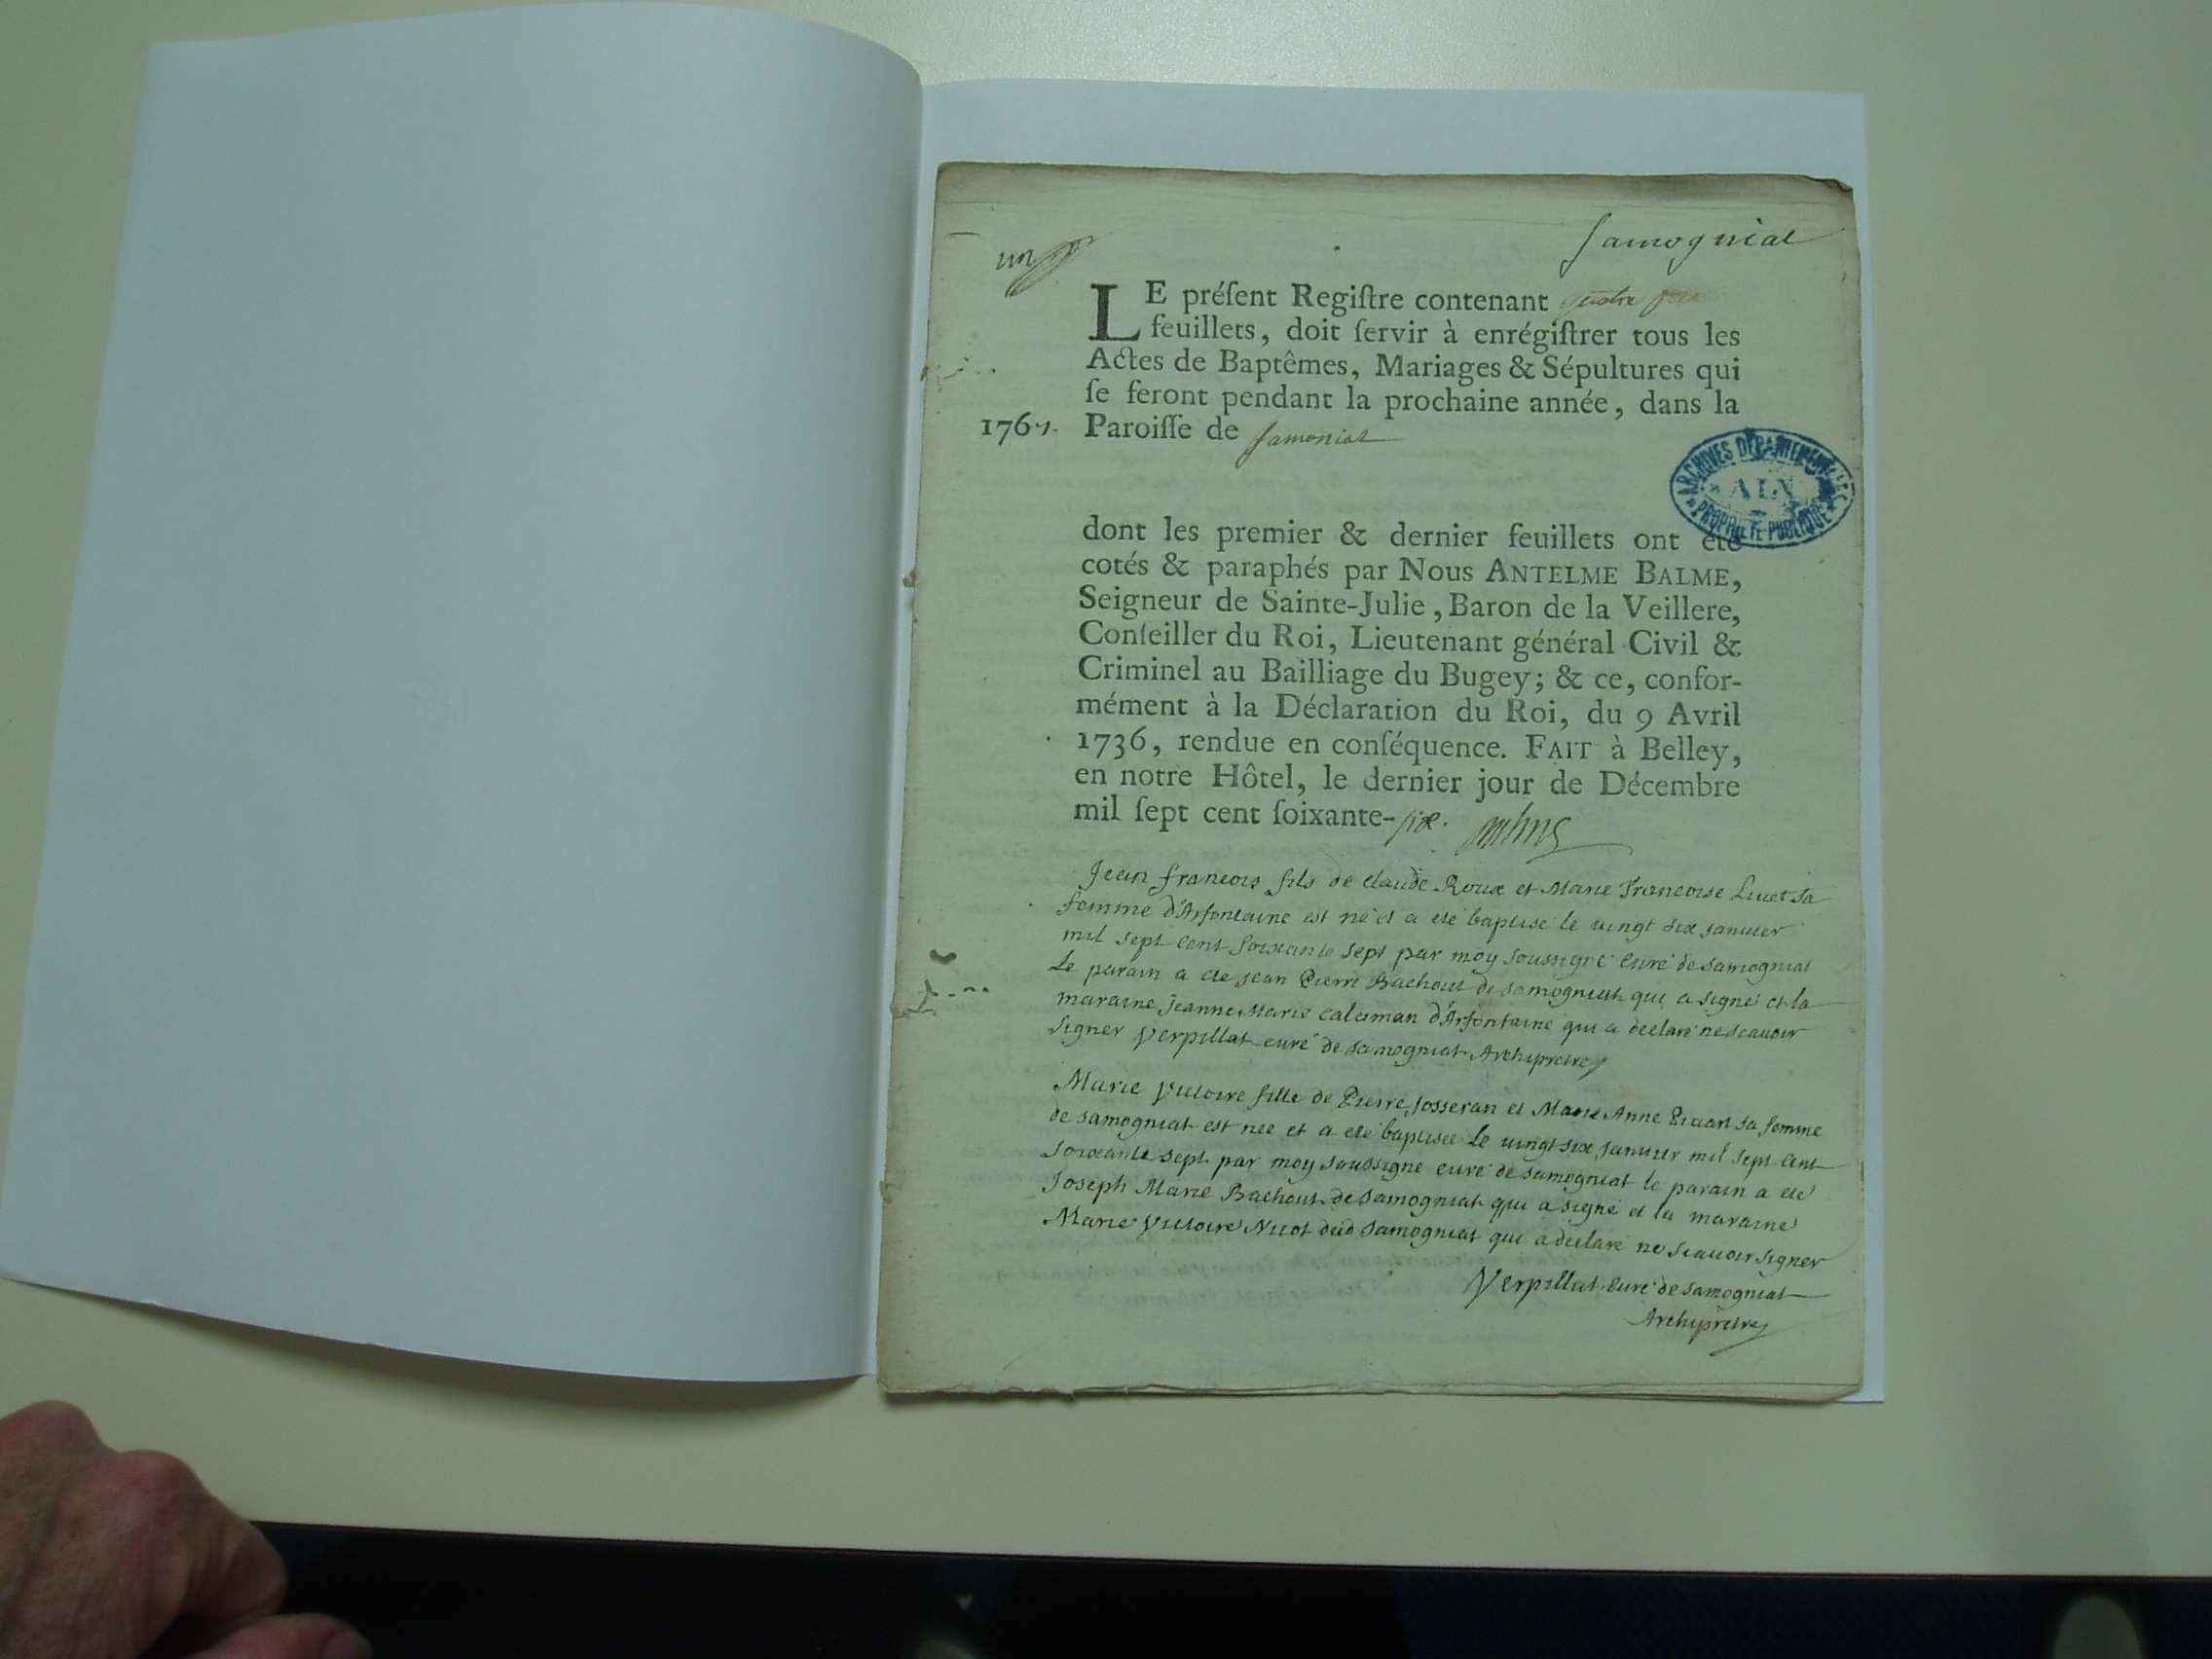 un
Samogniat
LE préſent Regiſtre contenant quatre
feuillets, doit ſervir à enrégiſtrer tous les
Actes de Baptêmes, Mariages & Sépultures qui
ſe feront pendant la prochaine année, dans la
1767. Paroiſſe de Samoniat
ARCHIVES DÉPARTEMENTALES
AIN
PROPRIÉTÉ PUBLIQUE
dont les premier & dernier feuillets ont été
cotés & paraphés par Nous ANTELME BALME,
Seigneur de Sainte-Julie, Baron de la Veillere,
Conſeiller du Roi, Lieutenant général Civil &
Criminel au Bailliage du Bugey; & ce, confor-
mément à la Déclaration du Roi, du 9 Avril
1736, rendue en conſéquence. FAIT à Belley,
en notre Hôtel, le dernier jour de Décembre
mil ſept cent ſoixante-six.
Jean francois fils de claude Roux et Marie Francoise Livet sa
femme d'Arfontaine est né et a eté baptisé le vingt six janvier
mil sept cent soixante sept par moy soussigné curé de samogniat
Le parain a eté jean Pierre Bachout de samogniat qui a signé et la
maraine jeanne Marie caloman d'Arfontaine qui a declaré ne scavoir
signer Verpillat curé de samogniat Archipretre
Marie Victoire fille de Pierre josseran et Marie Anne sa femme
de samogniat est née et a eté baptisée Le vingt six janvier mil sept cent
soixante sept par moy soussigné curé de samogniat le parain a eté
Joseph Marie Bachout de samogniat qui a signé et la maraine
Marie Victoire Nicot dud samogniat qui a declaré ne scavoir signer
Verpillat curé de samogniat
Archipretre